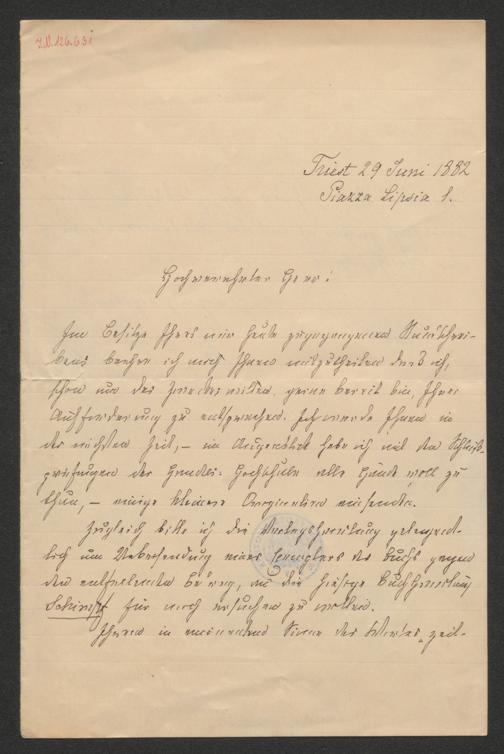 I.N. 126.631
Triest 29 Juni 1882
Piazza Lipsia 1.
Hochverehrter Herr!
Im Besitze Ihres mir heute zugegangenen
bens beehre ich mich Ihnen mitzutheilen daß ich,
schon um des Zweckes willen, gerne bereit bin, Ihrer
Aufforderung zu entsprechen. Ich werde Ihnen in
der nächsten Zeit, – im Augenblick habe ich mit den Schluß-
prüfungen der Handels-Hochschule alle Hände voll zu
thun, – einige kleinere einsenden.
Zugleich bitte ich die Verlagshandlung gelegent-
lich um Uebersendung eines Exemplars des Buchs gegen
den entfallenden Betrag, an die hiesige Buchhandlung
Schimpff für mich ersuchen zu wollen.
Ihnen in Sinne des Wortes